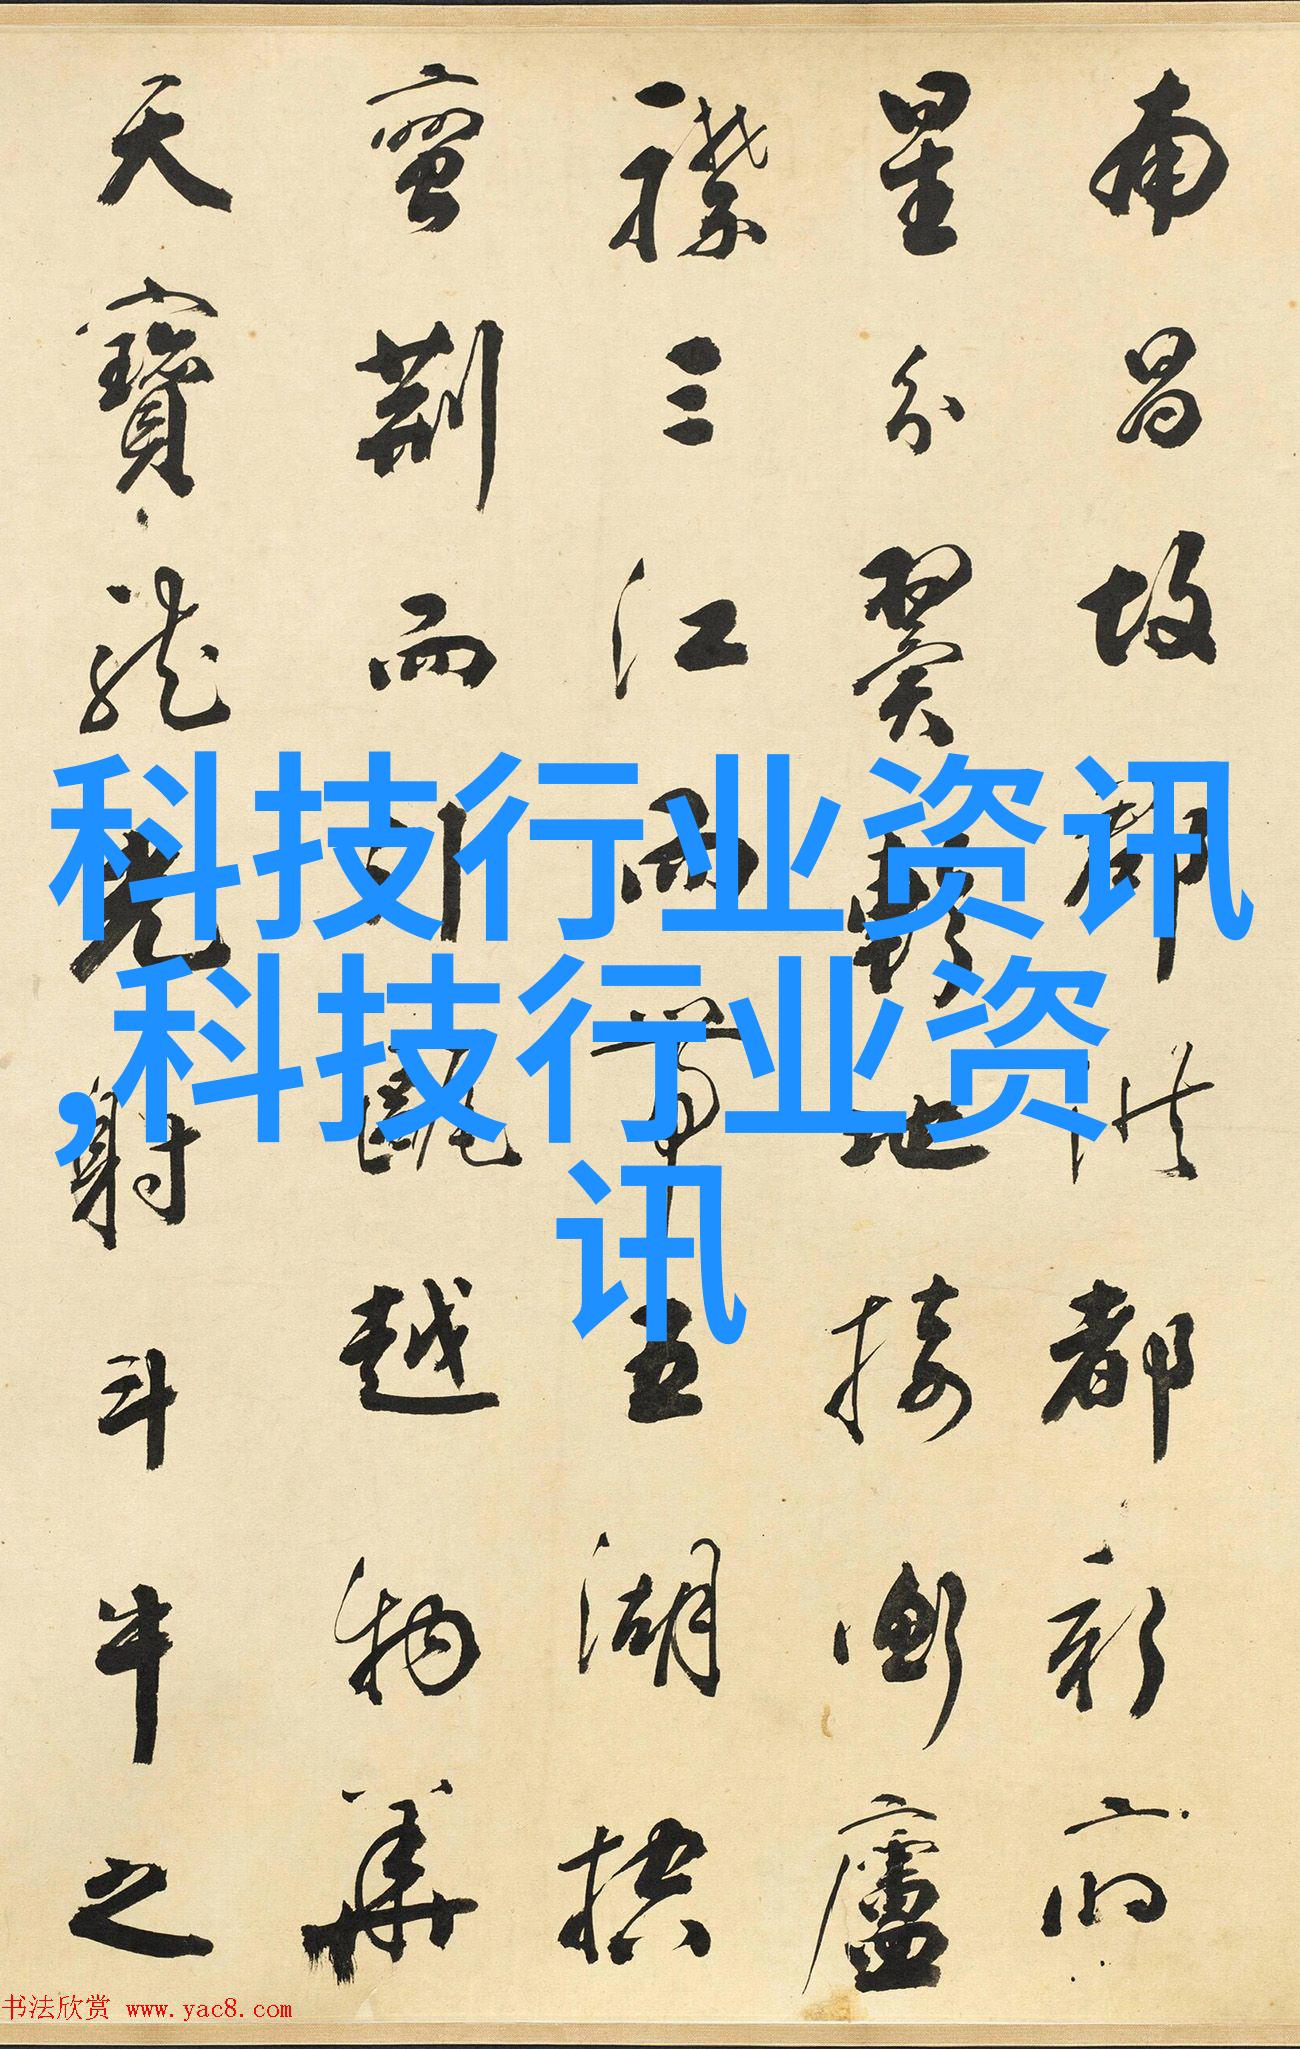 南昌故都洪都新府
星分翼軫地接衡廬
襟三江而帶五湖控
蠻荊而引甌越物華
天寶龍光射斗牛之
科技行业资讯
,科技行业资
讯
书法欣赏 www.yac8.com